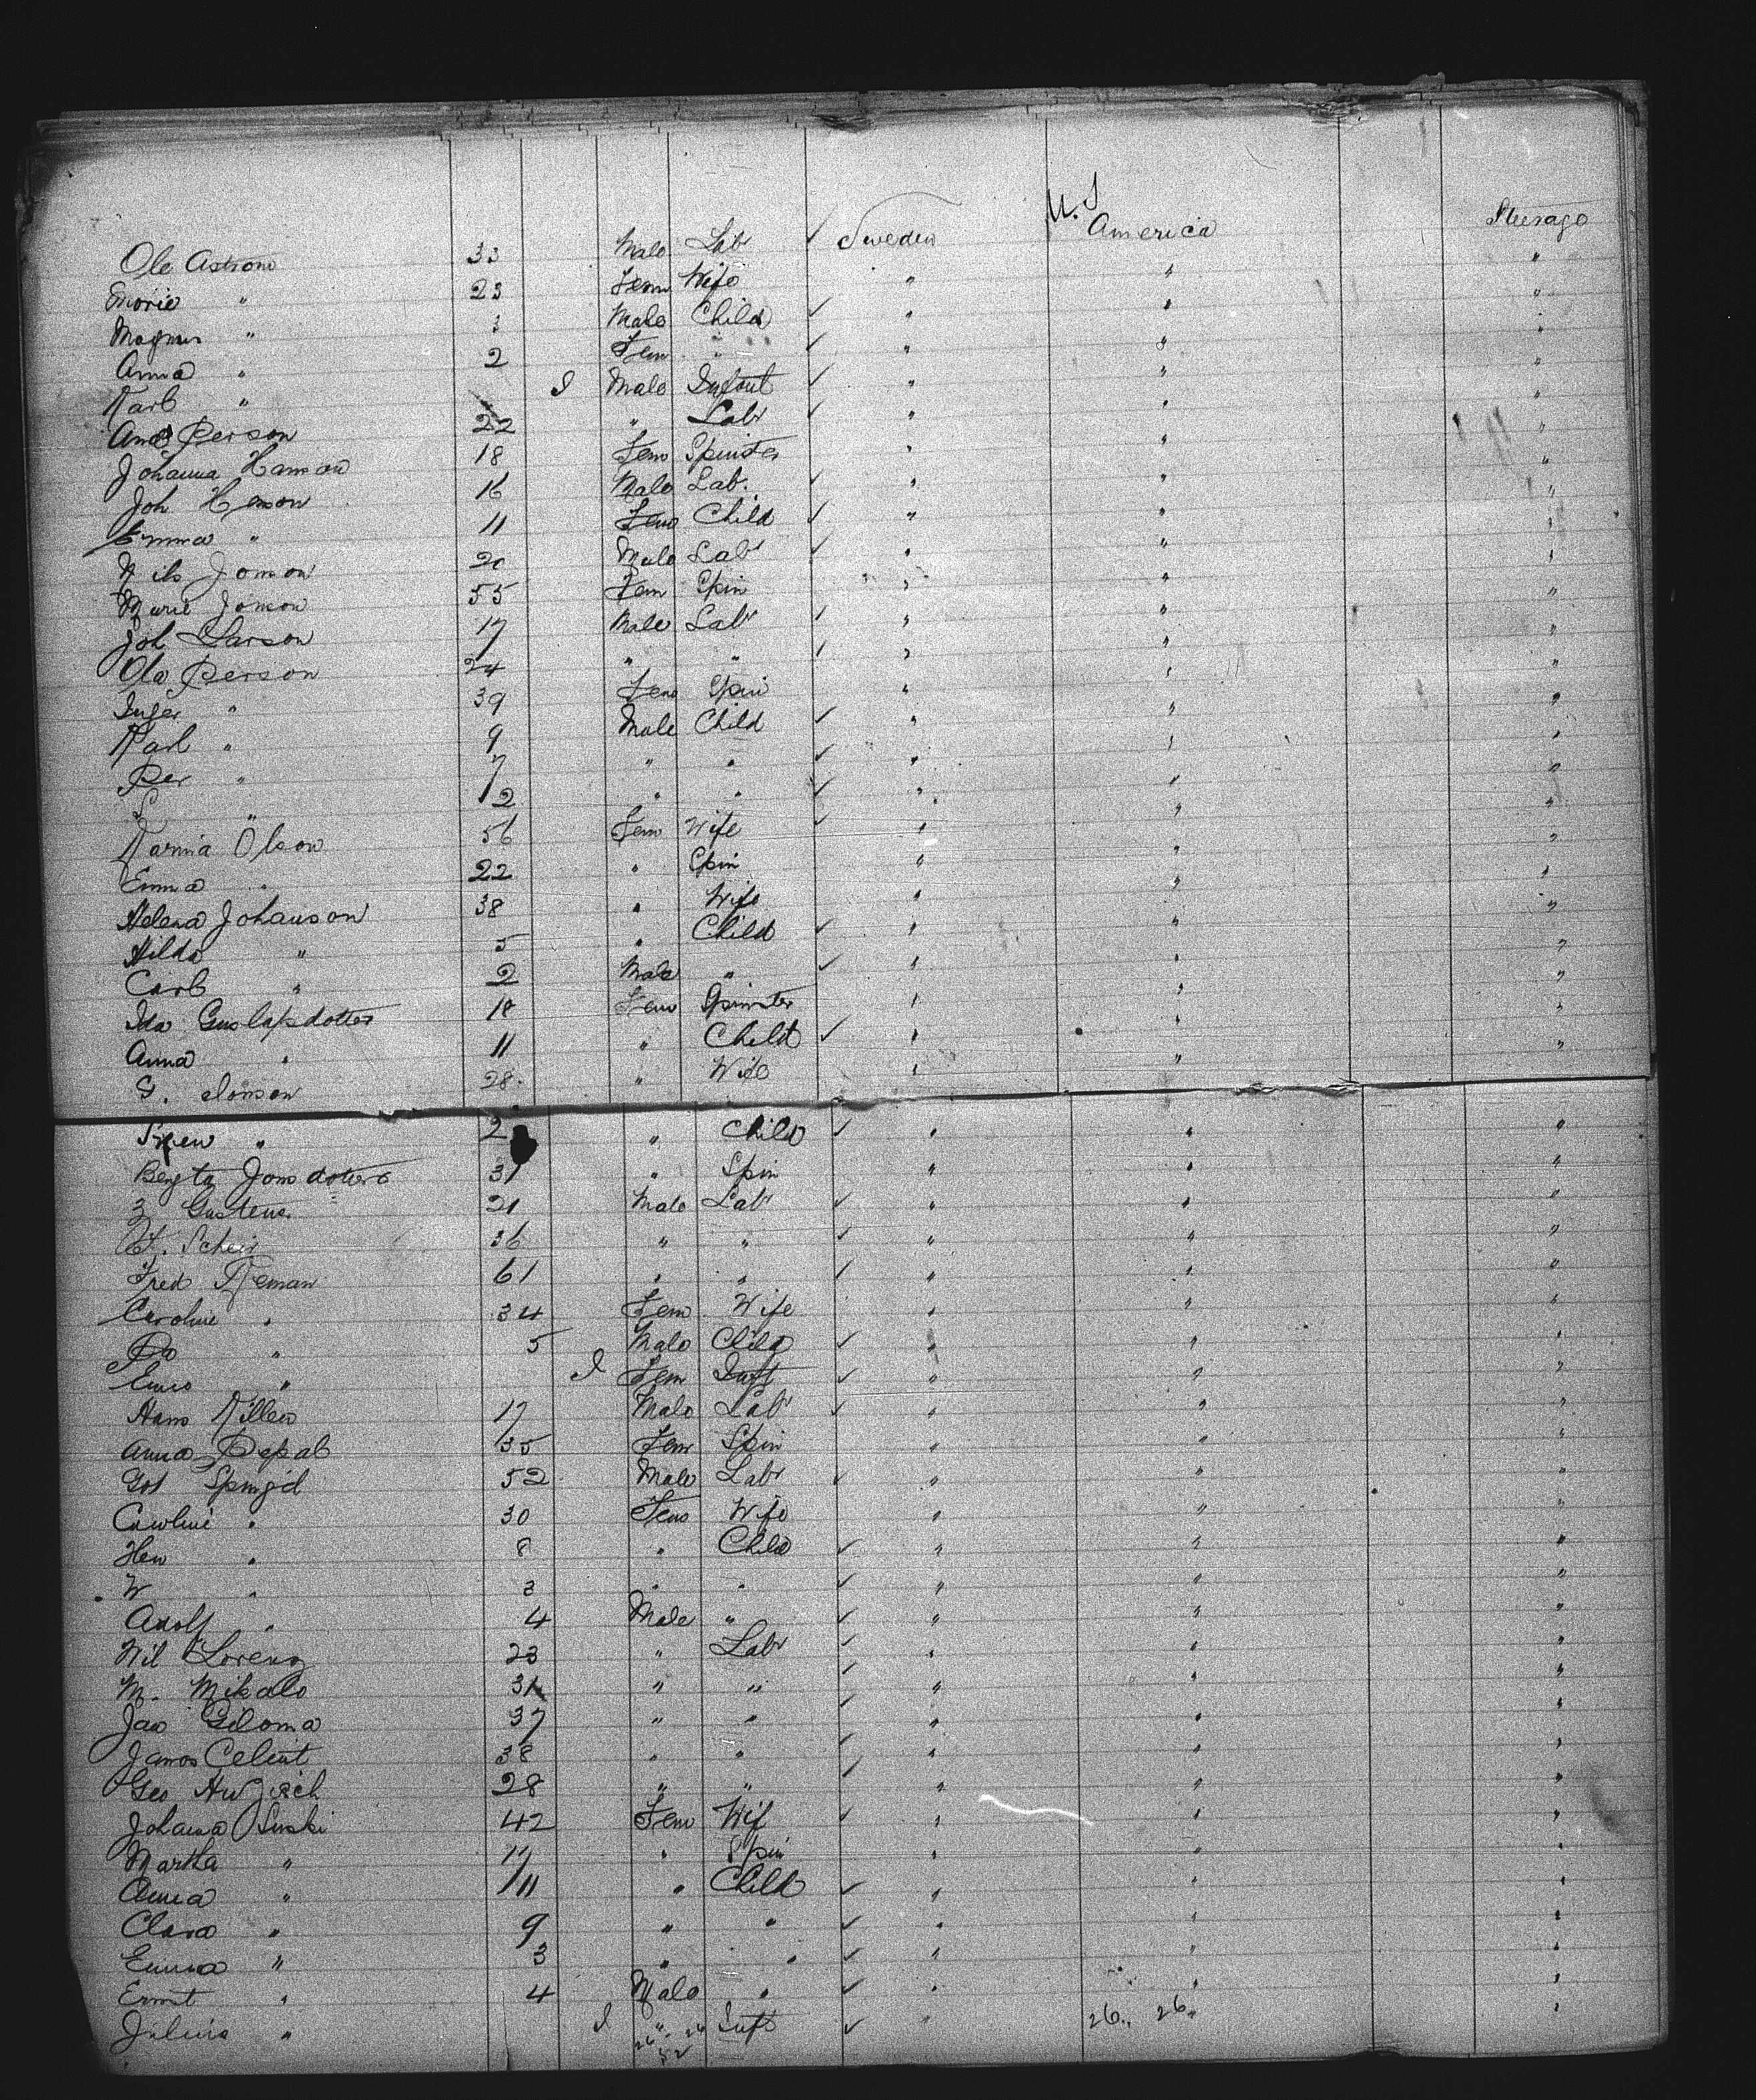 U.S
Ole Astrom 33 Male Labr ✓ Sweden America Steerage
Marie " 23 Fem Wife " " "
Magnus " 3 Male Child ✓ " " "
Anna " 2 Fem " ✓ " " "
Karl " I Male Infant ✓ " " "
And Person 22 " Labr ✓ " " "
Johanna Hanson 18 Fem Spinster " " "
Joh Henson 16 Male Lab. ✓ " " "
Emma " 11 Fem Child ✓ " " "
Nils Jonson 20 Male Labr ✓ " " "
Marie Jonson 55 Fem Spin " " "
Joh Larson 17 Male Labr ✓ " " "
Ola Person 24 " " ✓ " " "
Inger " 39 Fem Spin " " "
Karl " 9 Male Child ✓ " " "
Per " 7 " " ✓ " " "
" 2 " " ✓ " " "
Karnia Olson 56 Fem Wife ✓ " " "
Emma " 22 " Spin " " "
Helena Johanson 38 " Wife " " "
Hilda " 5 " Child ✓ " " "
Carl " 2 Male " ✓ " " "
Ida Guslafsdotter 18 Fem Spinster " " "
Anna " 11 " Child ✓ " " "
G. Jonson 28 " Wife " " "
" 2 " Child ✓ " " "
Bengta Jonsdotter 31 " Spin " " "
Gustens 21 Male Labr ✓ " " "
36 " " ✓ " " "
Fred 61 " " ✓ " " "
Caroline " 34 Fem Wife " " "
" 5 Male Child ✓ " " "
" I Fem Inft ✓ " " "
Hans Killen 17 Male Labr ✓ " " "
Anna Pepal 35 Fem Spin " " "
52 Male Labr ✓ " " "
Caroline " 30 Fem Wife " " "
Hen " 8 " Child ✓ " " "
W " 3 " " ✓ " " "
Adolf " 4 Male " ✓ " " "
Wil Lorenz 23 " Labr ✓ " " "
M. Mikalo 31 " " ✓ " " "
Jan Giloma 37 " " ✓ " " "
Janos Celint 38 " " ✓ " " "
Geo 28 " " ✓ " " "
Johanna Suski 42 Fem Wif ✓ " " "
Martha " 17 " Spin " " "
Anna " 11 " Child ✓ " " "
Clara " 9 " " ✓ " " "
Emma " 3 " " ✓ " " "
Ernst " 4 Male " ✓ " " "
Julius " I " Inft ✓ " 26 " 26 " "
26 26
52